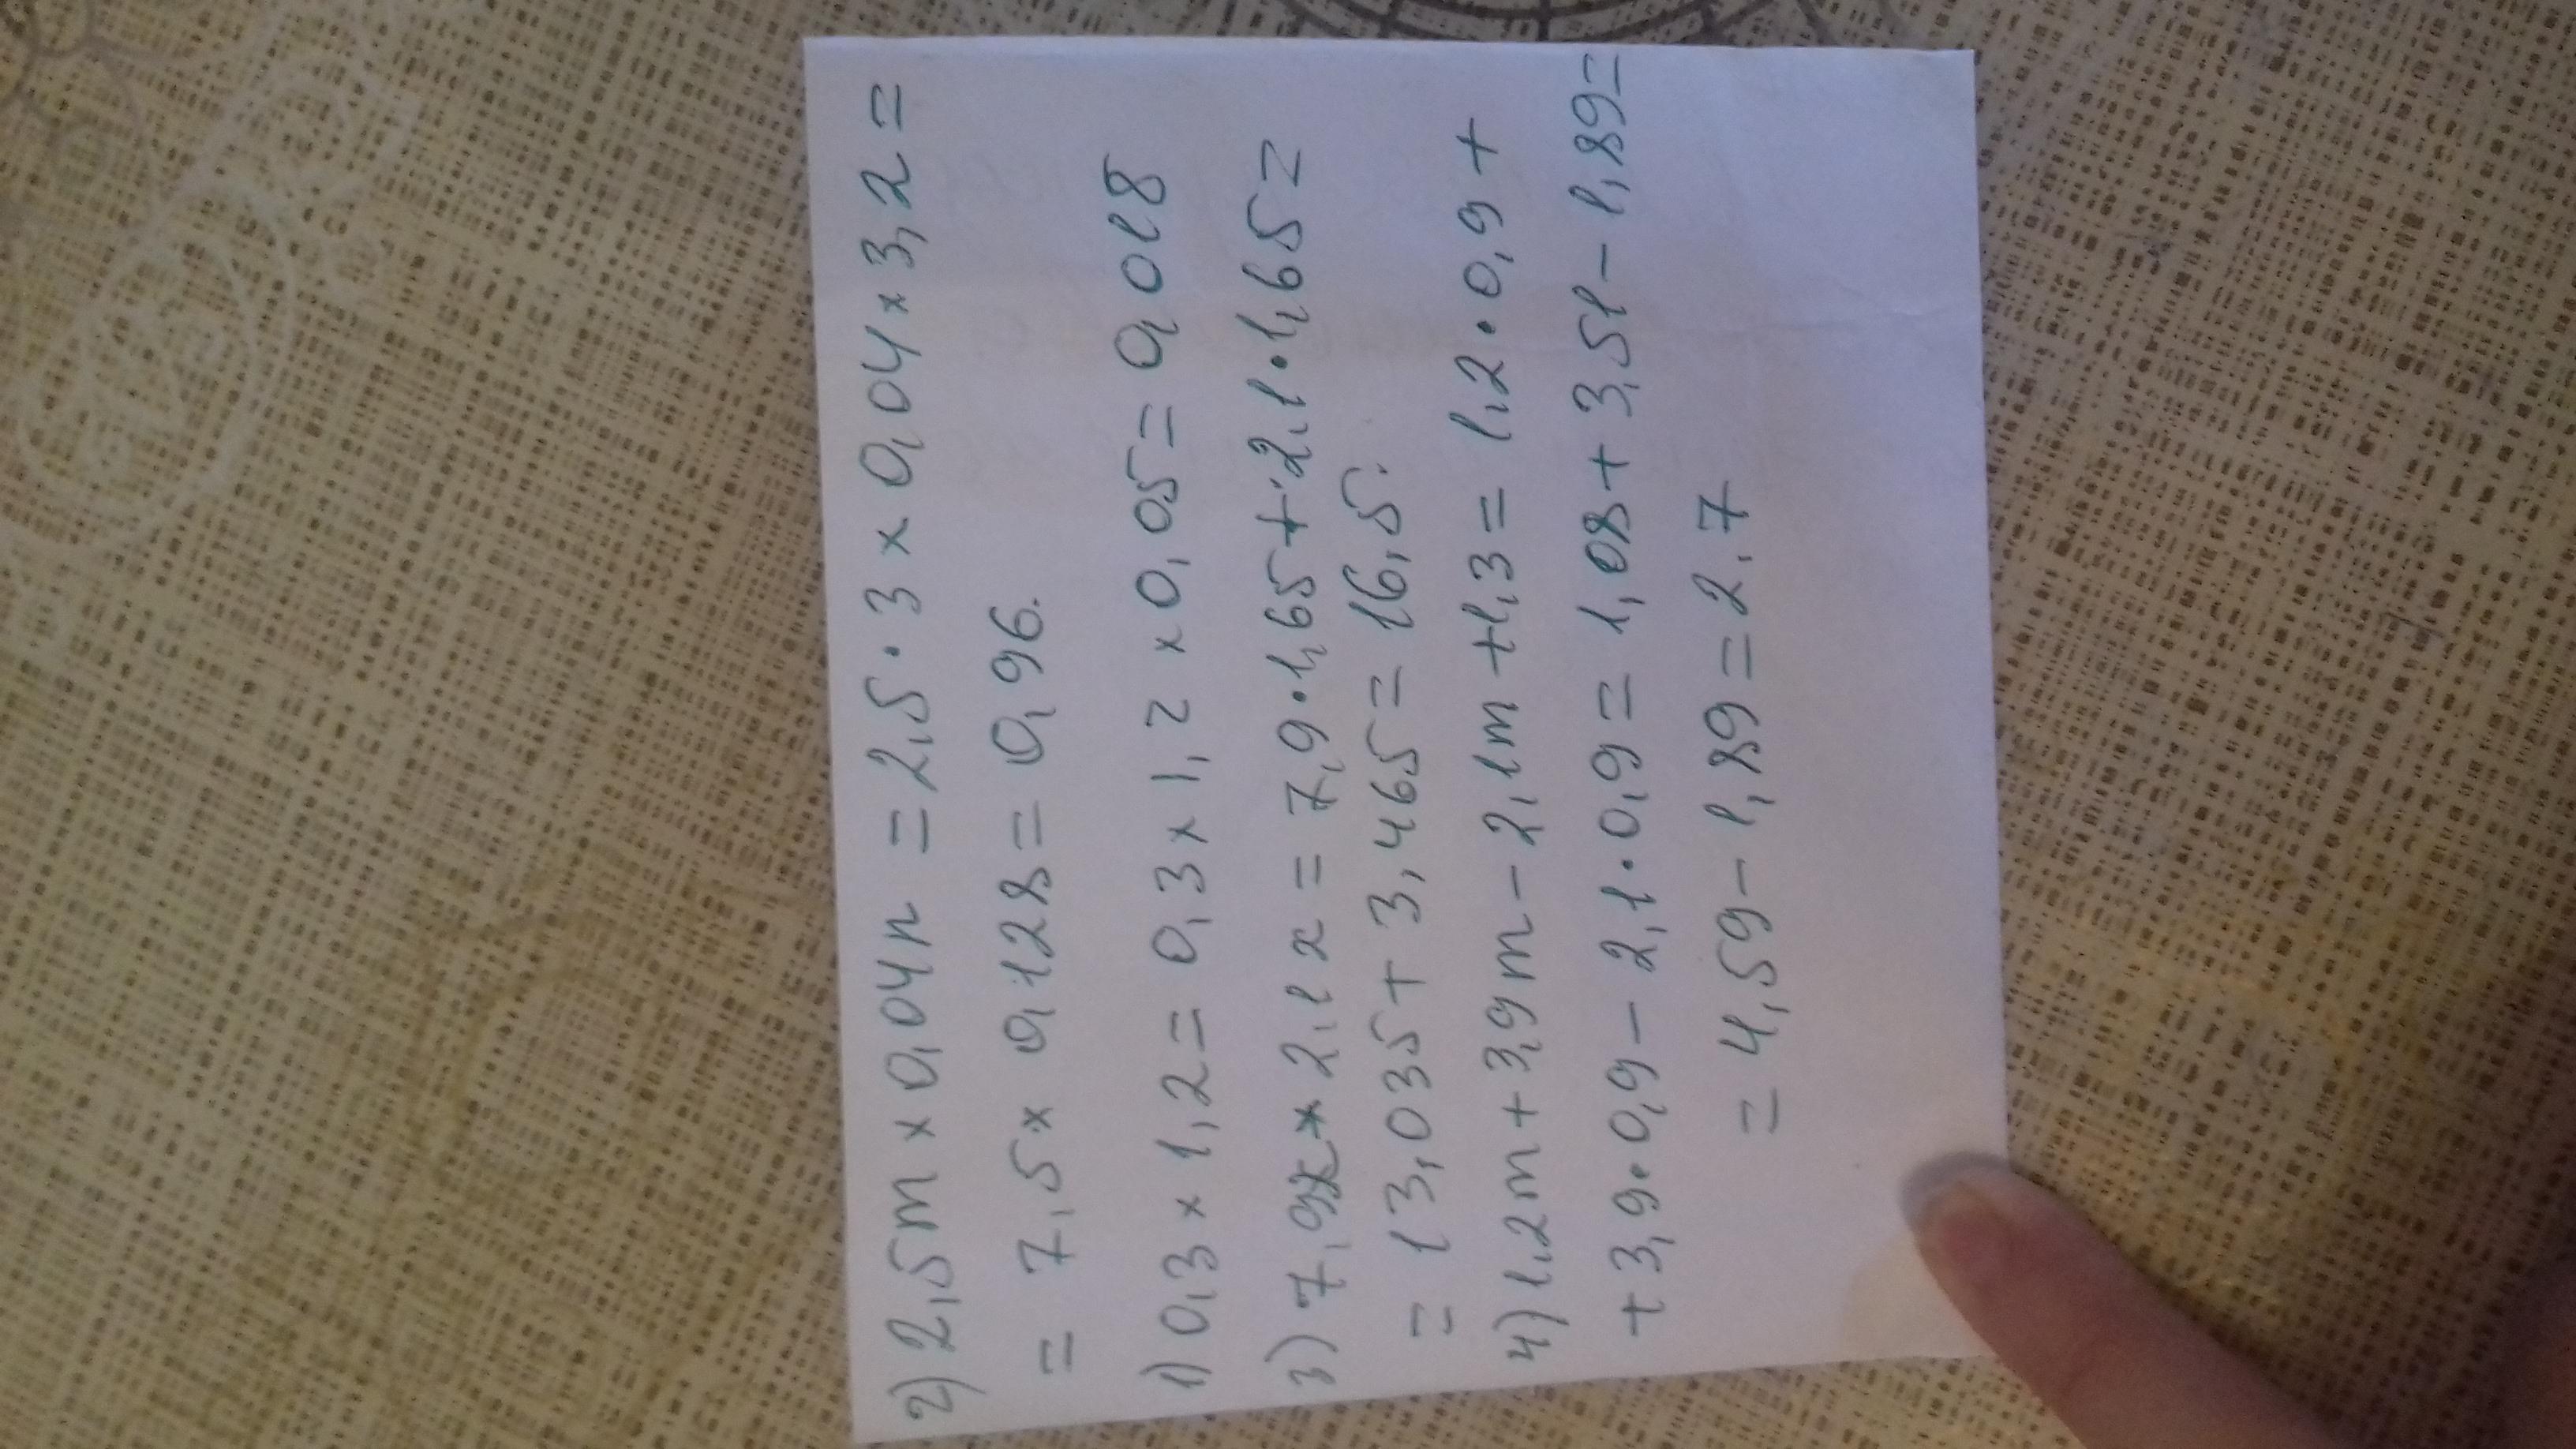 2) 2,5m × 0,04n = 2,5 · 3 × 0,04 × 3,2 =
= 7,5 × 0,128 = 0,96.
1) 0,3 × 1,2 = 0,3 × 1,2 × 0,05 = 0,018
3) 7,9x × 2,1x = 7,9 · 1,65 + 2,1 · 1,65 =
= 13,035 + 3,465 = 16,5.
4) 1,2m + 3,9m - 2,1m + 1,3 = 1,2 · 0,9 +
+ 3,9 · 0,9 - 2,1 · 0,9 = 1,08 + 3,51 - 1,89 =
= 4,59 - 1,89 = 2,7